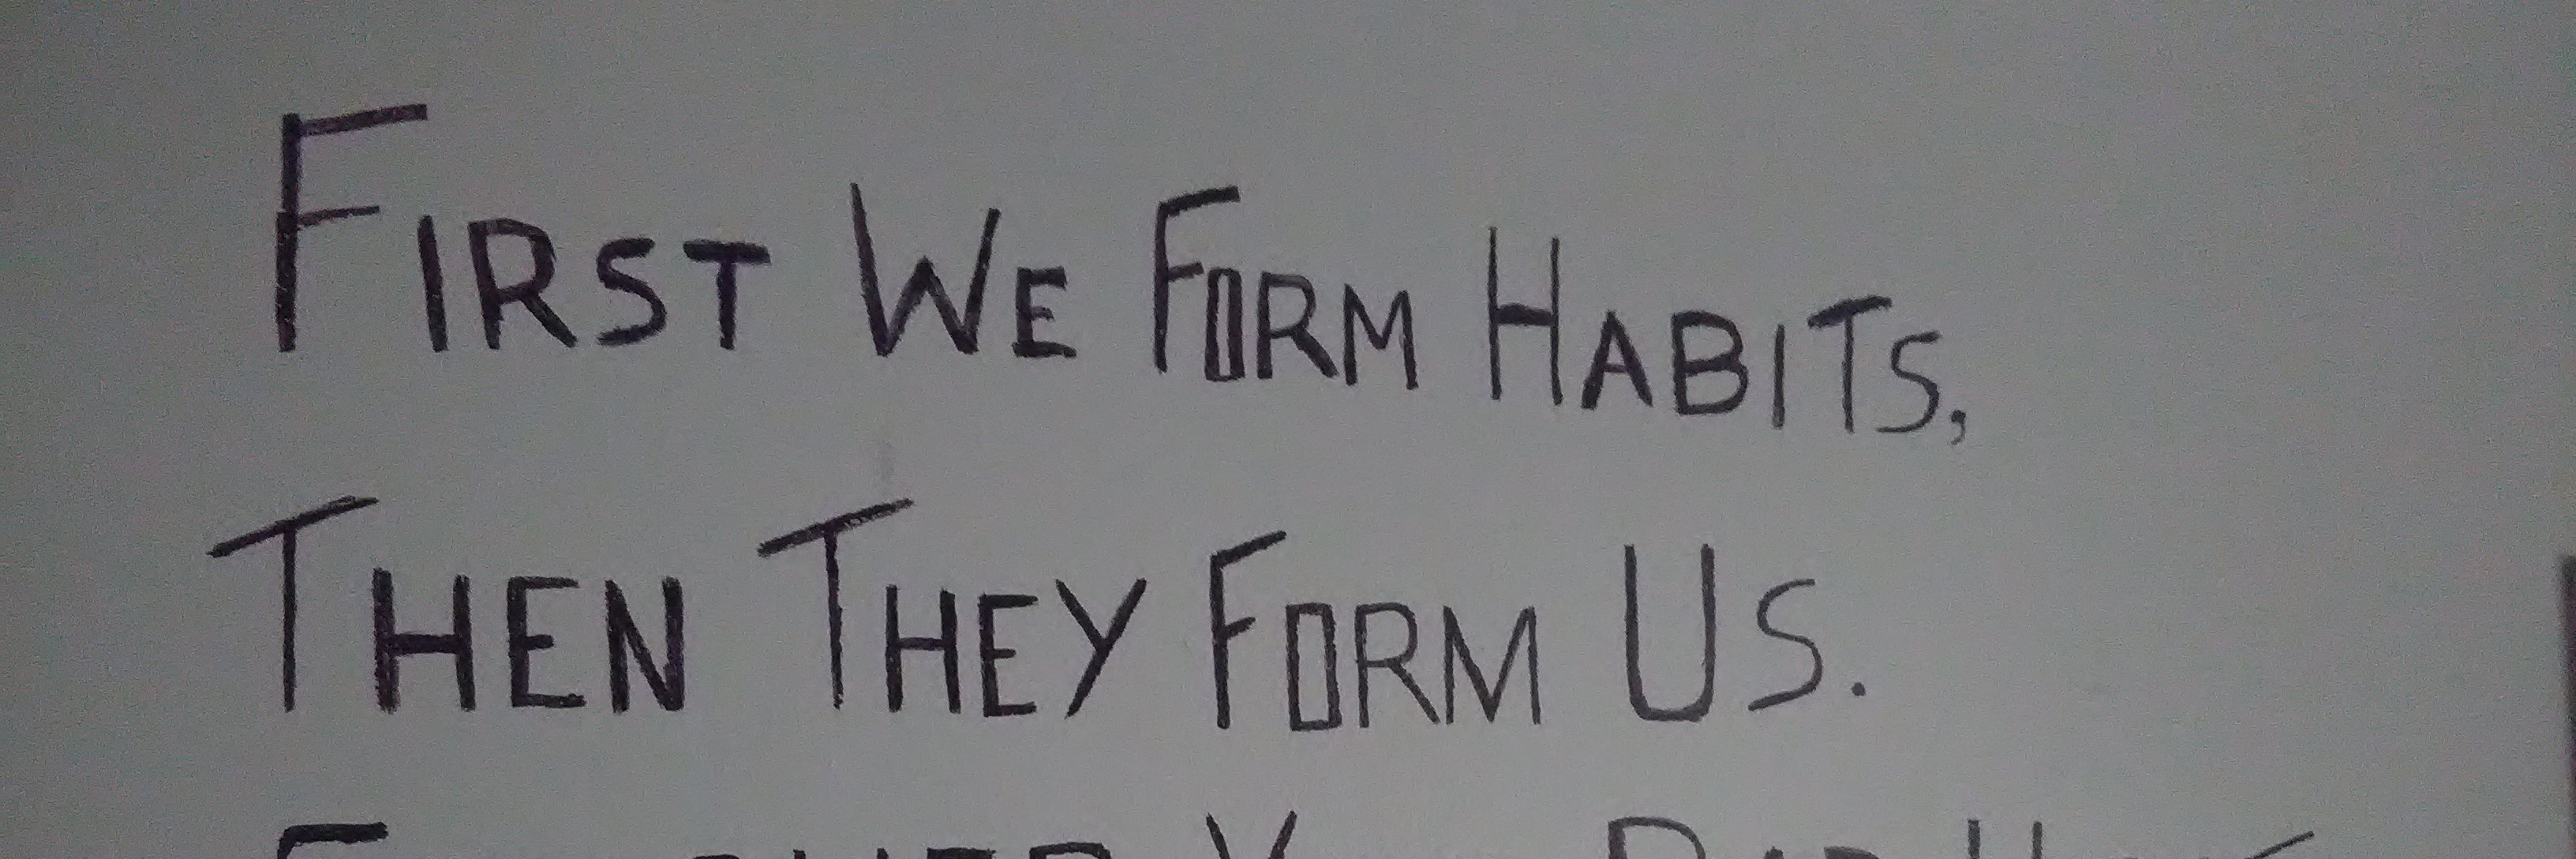 First We Form Habits,
Then They Form Us.